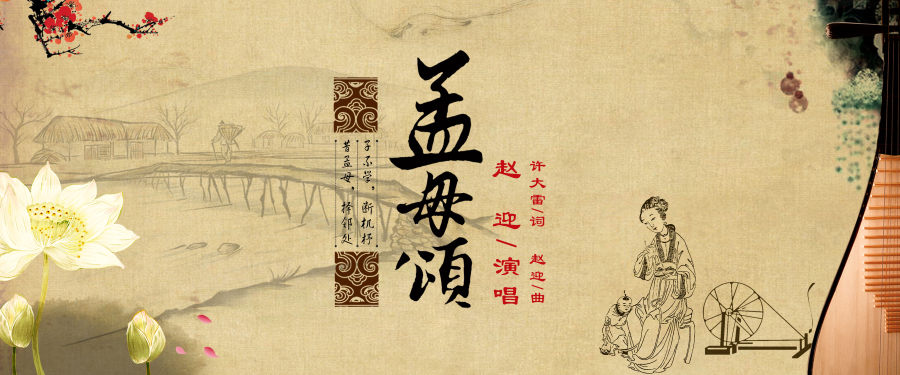 孟母頌
昔孟母，择邻处
子不学，断机杼
赵迎/演唱
许大雷/词 赵迎/曲